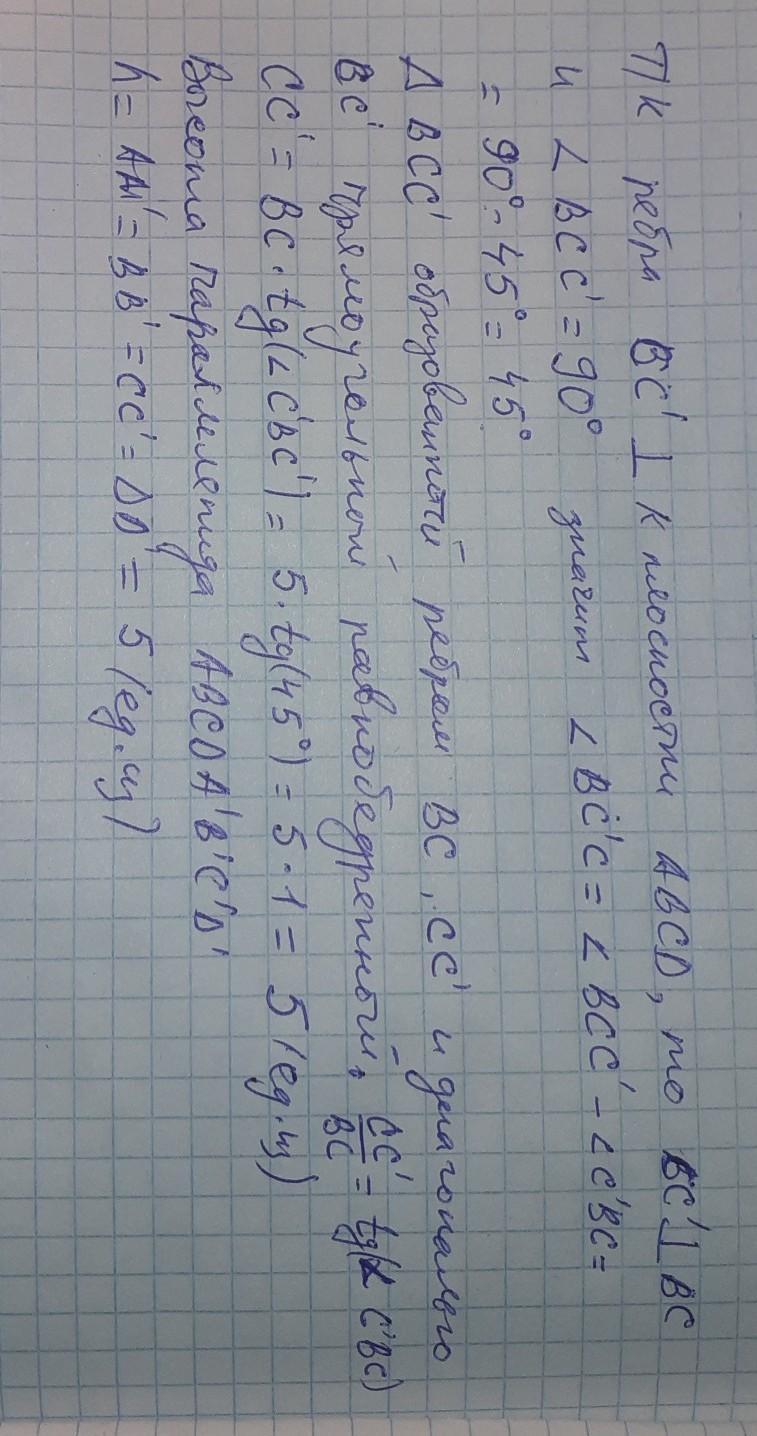 Т/к ребра BC' ⊥ к плоскости ABCD, то BC' ⊥ BC
и ∠ BCC' = 90° значит ∠ BC'C = ∠ BCC' - ∠C'BC =
= 90° - 45° = 45°
Δ BCC' образованный ребрам BC, CC' и диагональю
BC' прямоугольный равнобедренный. CC'/BC = tg(∠ C'BC)
CC' = BC · tg(∠C'BC') = 5 · tg(45°) = 5 · 1 = 5 (ед.ц)
Высота параллелепида ABCDA'B'C'D'
h = AA' = BB' = CC' = DD' = 5 (ед.ц)